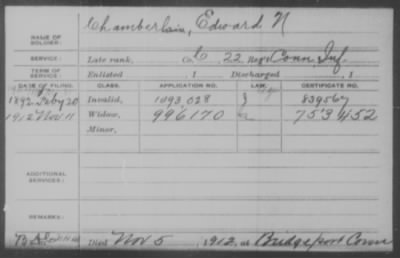 Chamberlain, Edward N
NAME OF SOLDIER:
SERVICE: Late rank, Co. C, 22 Reg't Conn Inf.
TERM OF SERVICE: Enlisted , 1 Discharged , 1
DATE OF FILING. CLASS. APPLICATION NO. LAW. CERTIFICATE NO.
1892 Feby 20 Invalid, 1093,028 839567
1912 Nov 11 Widow, 996170 753452
Minor,
ADDITIONAL SERVICES:
REMARKS:
Died Nov 5, 1912, at Bridgeport Conn